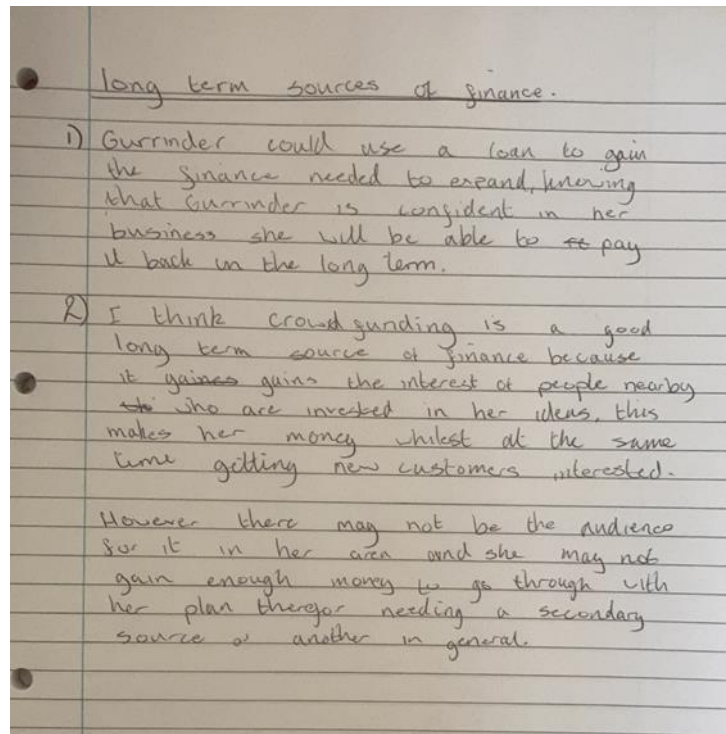 long term sources of finance.
1) Gurrinder could use a loan to gain
the finance needed to expand, knowing
that Gurrinder is confident in her
business she will be able to pay
it back in the long term.
2) I think crowdfunding is a good
long term source of finance because
it gaines gains the interest of people nearby
who are invested in her ideas, this
makes her money whilest at the same
time getting new customers interested.
However there may not be the audience
for it in her area and she may not
gain enough money to go through with
her plan therefor needing a secondary
source or another in general.